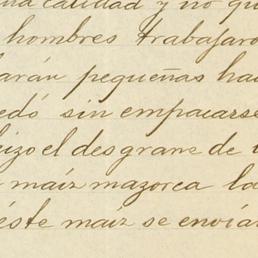 calidad y no
hombres trabajaro
arán pequeñas ha
edó sin empacarse
izo el desgrane de
maíz mazorca la
éste maíz se enviar